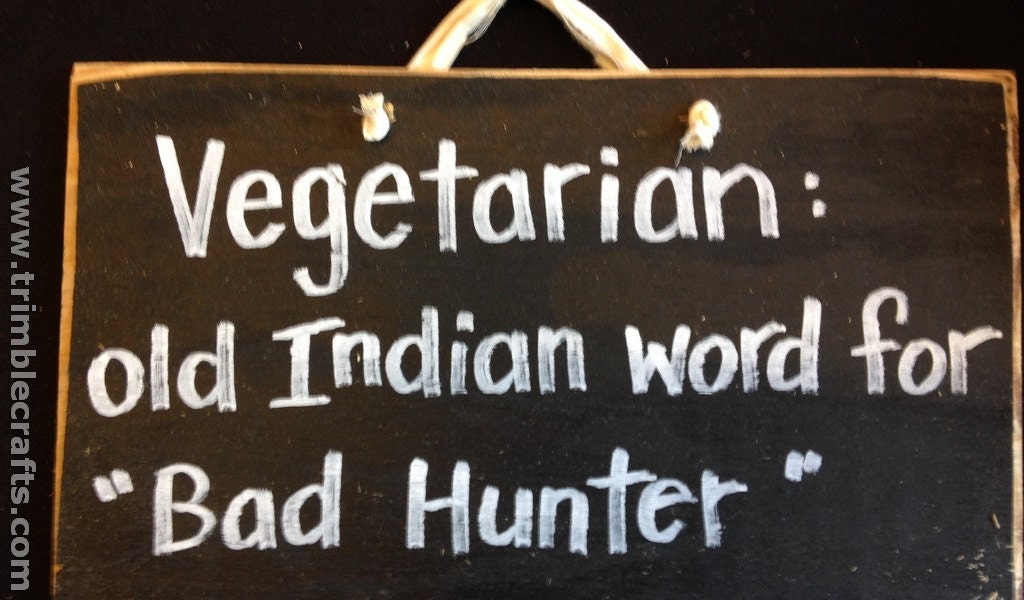 Vegetarian:
old Indian word for
"Bad Hunter"
www.trimblecrafts.com